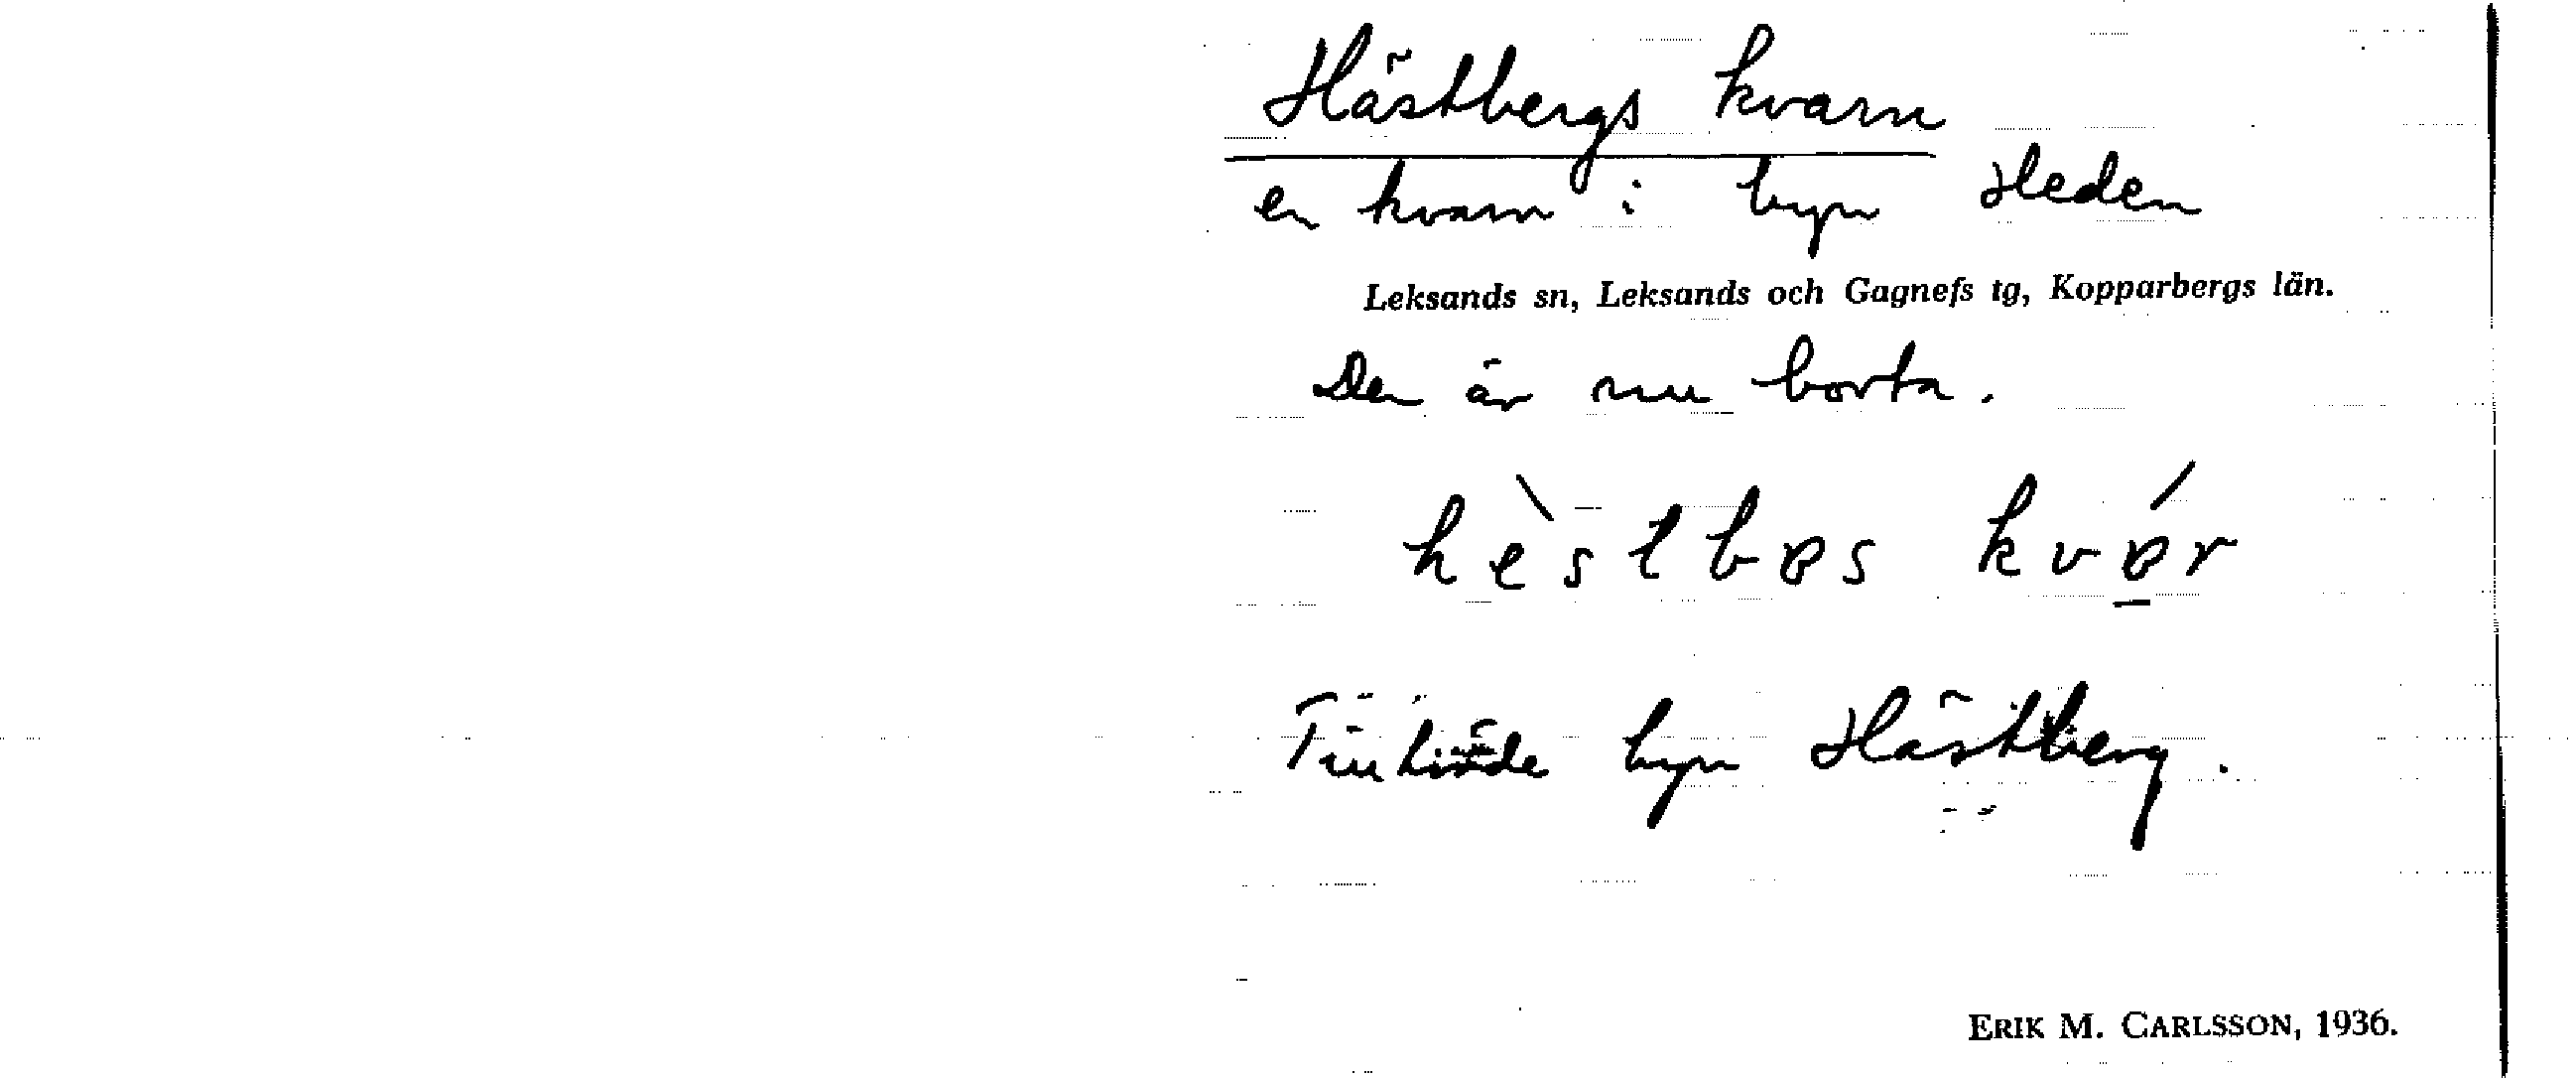 Hästbergs kvarn
en kvarn i byn Heden
Leksands sn, Leksands och Gagnefs tg, Kopparbergs län.
Den är nu borta.
hèstbɐs kvɐ́r
Tillhörde byn Hästberg.
ERIK M. CARLSSON, 1936.